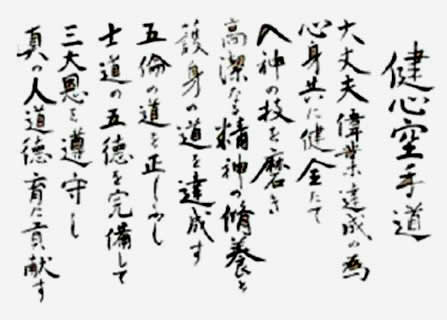 健心空手道
大丈夫偉業達成の為
心身共に健全たて
入神の技を磨き
高潔なる精神の脩養を
護身の道を達成す
五倫の道を正しふし
士道の五徳を完備して
三大恩を遵守し
真の人道徳育に貢献す